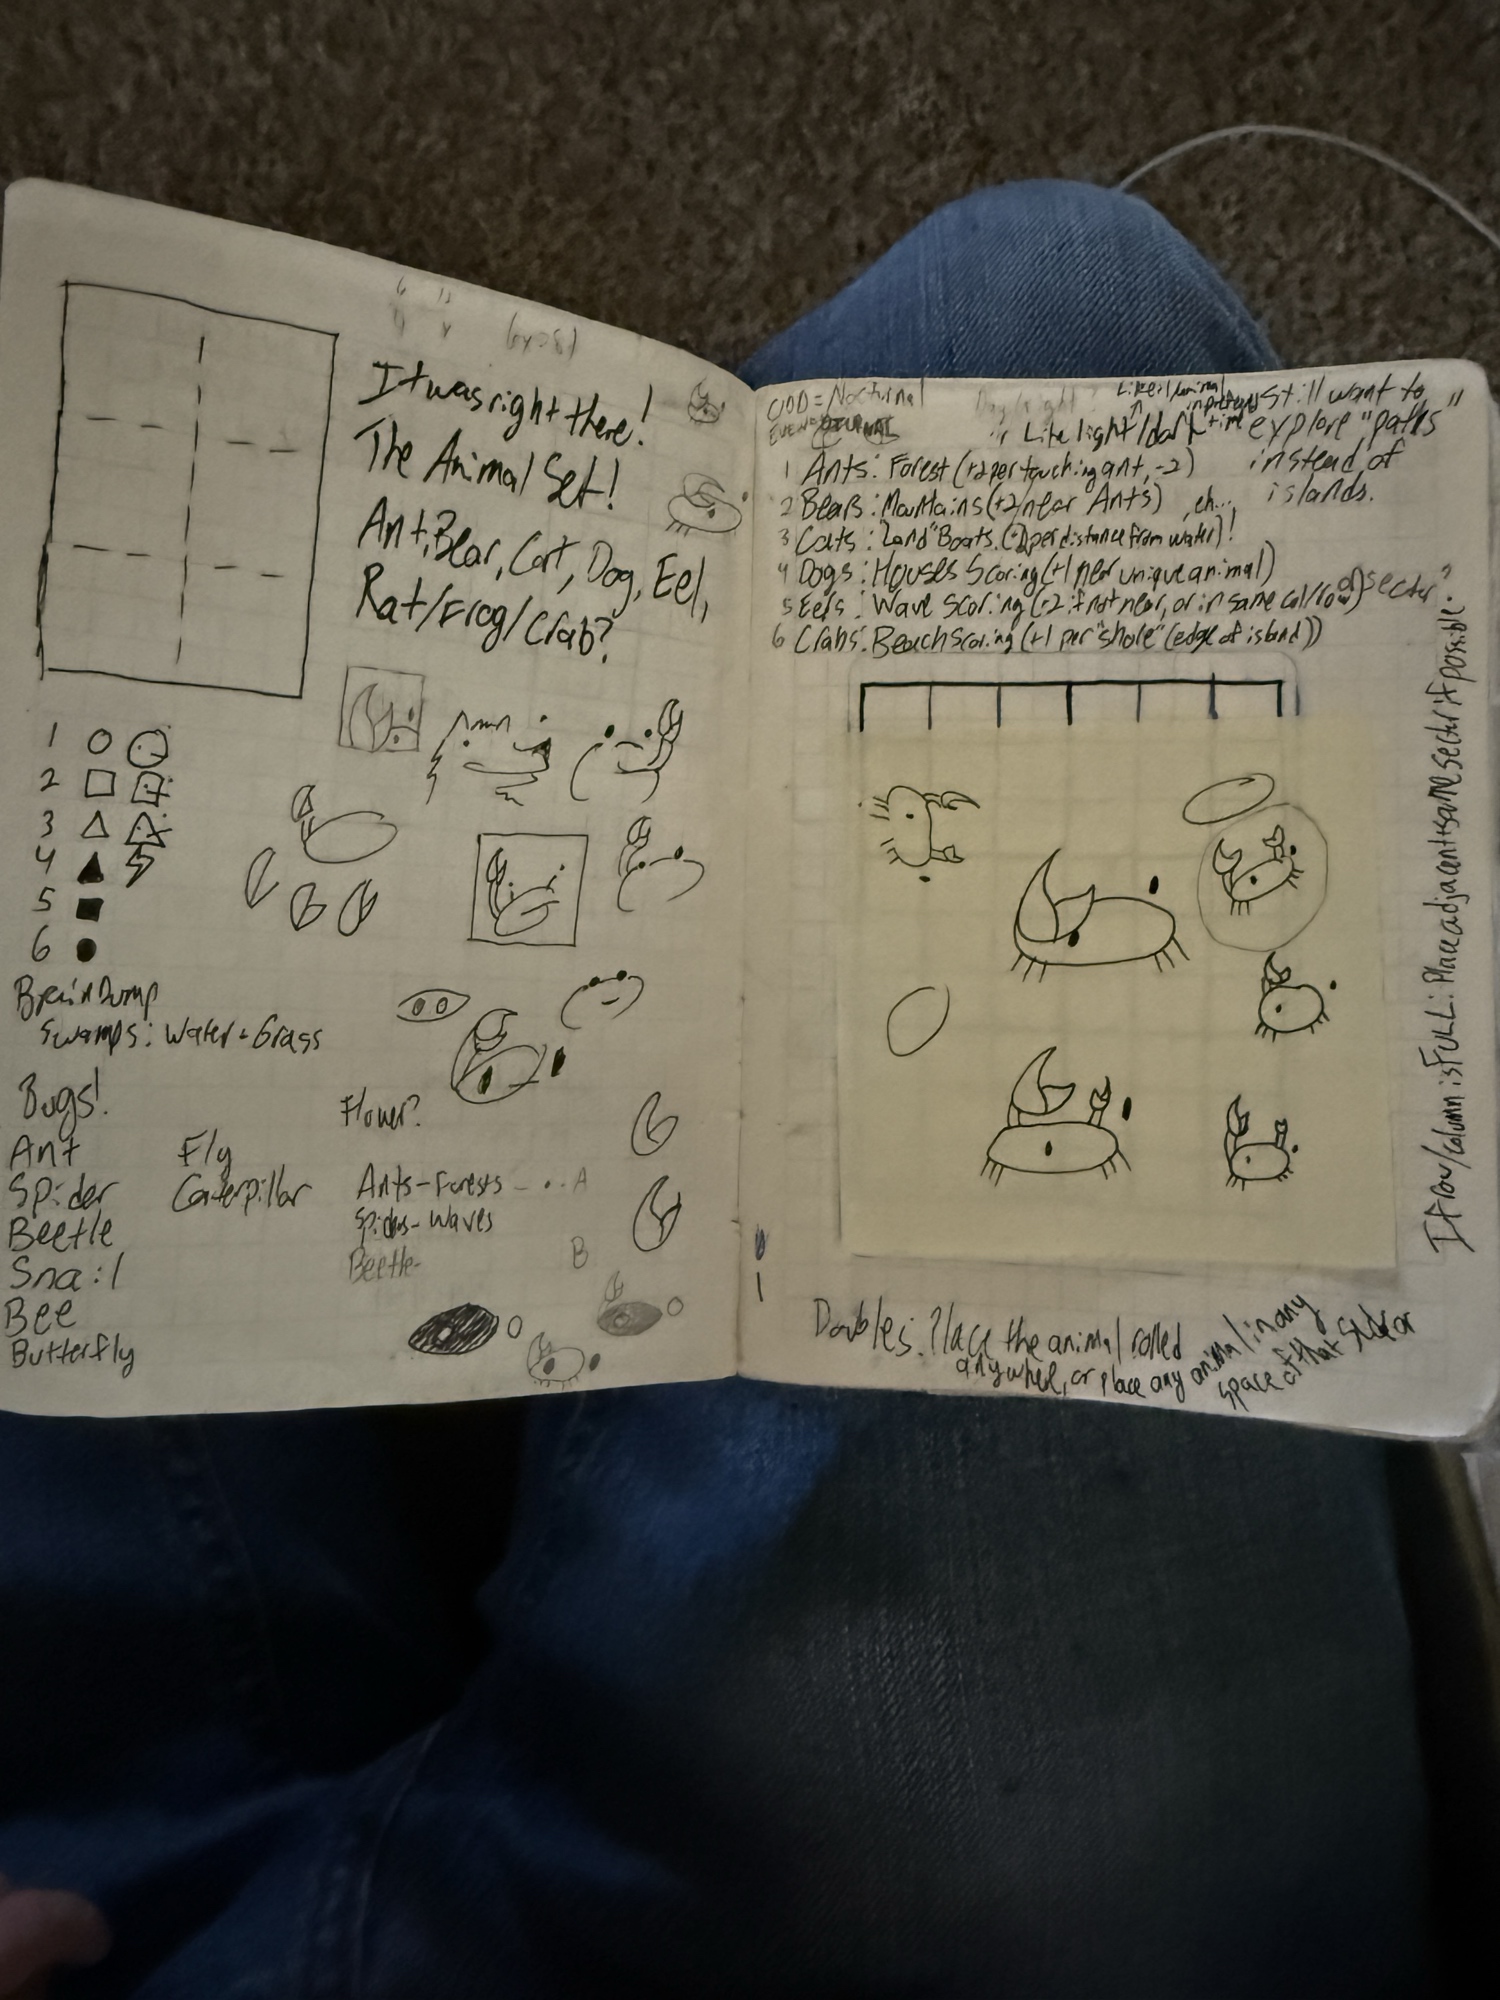 It was right there!
The Animal Set!
Ant, Bear, Cat, Dog, Eel,
Rat/Frog/Crab?
1
2
3
4
5
6
Brain Dump
Swamps: Water + Grass
Bugs!
Ant
Spider
Beetle
Snail
Bee
Butterfly
Fly
Caterpillar
Flower?
Ants-Forests - . . A
Spiders-Waves
Beetle-
B
ODD = Nocturnal
EVEN = DIURNAL
Day/night?
Like light/dark time
I still want to
explore "paths"
instead of
islands.
1 Ants: Forest (+2 per touching ant, -2)
2 Bears: Mountains (+2/near Ants) , eh...
3 Cats: "Land" Boats. (-1 per distance from water)!
4 Dogs: Houses Scoring (+1 near unique animal)
5 Eels: Wave Scoring (+2 if not near, or in same col/row) or sector?
6 Crabs: Beach Scoring (+1 per "shore" (edge of island))
If row/column is FULL: Place adjacent + same sector if possible.
0
1
Doubles: Place the animal rolled
anywhere, or place any animal in any
space of that